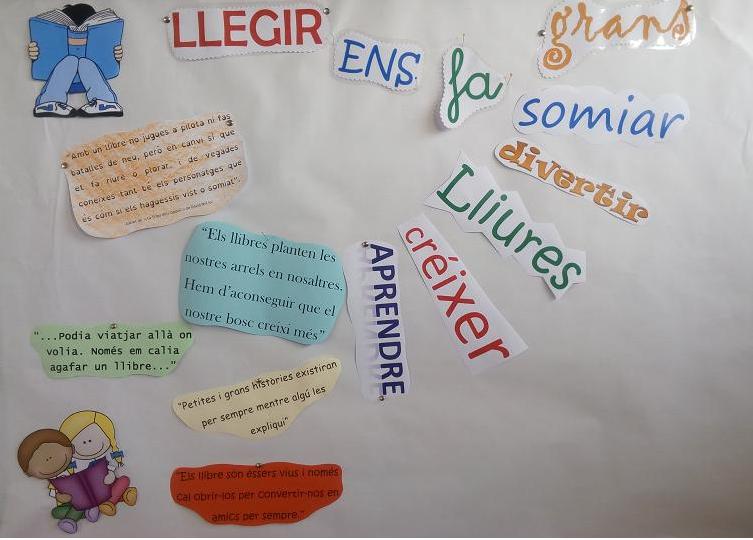 LLEGIR
ENS
fa
grans
somiar
divertir
Lliures
créixer
APRENDRE
Amb un llibre no jugues a pilota ni fas
batalles de neu, però en canvi sí que
et fa riure o plorar... de vegades
coneixes tant bé els personatges que
és com si els haguessis vist o somiat".
"Els llibres planten les
nostres arrels en nosaltres.
Hem d'aconseguir que el
nostre bosc creixi més"
"...Podia viatjar allà on
volia. Només em calia
agafar un llibre..."
"Petites i grans històries existiran
per sempre mentre algú les
expliqui"
"Els llibre són éssers vius i només
cal obrir-los per convertir-nos en
amics per sempre."